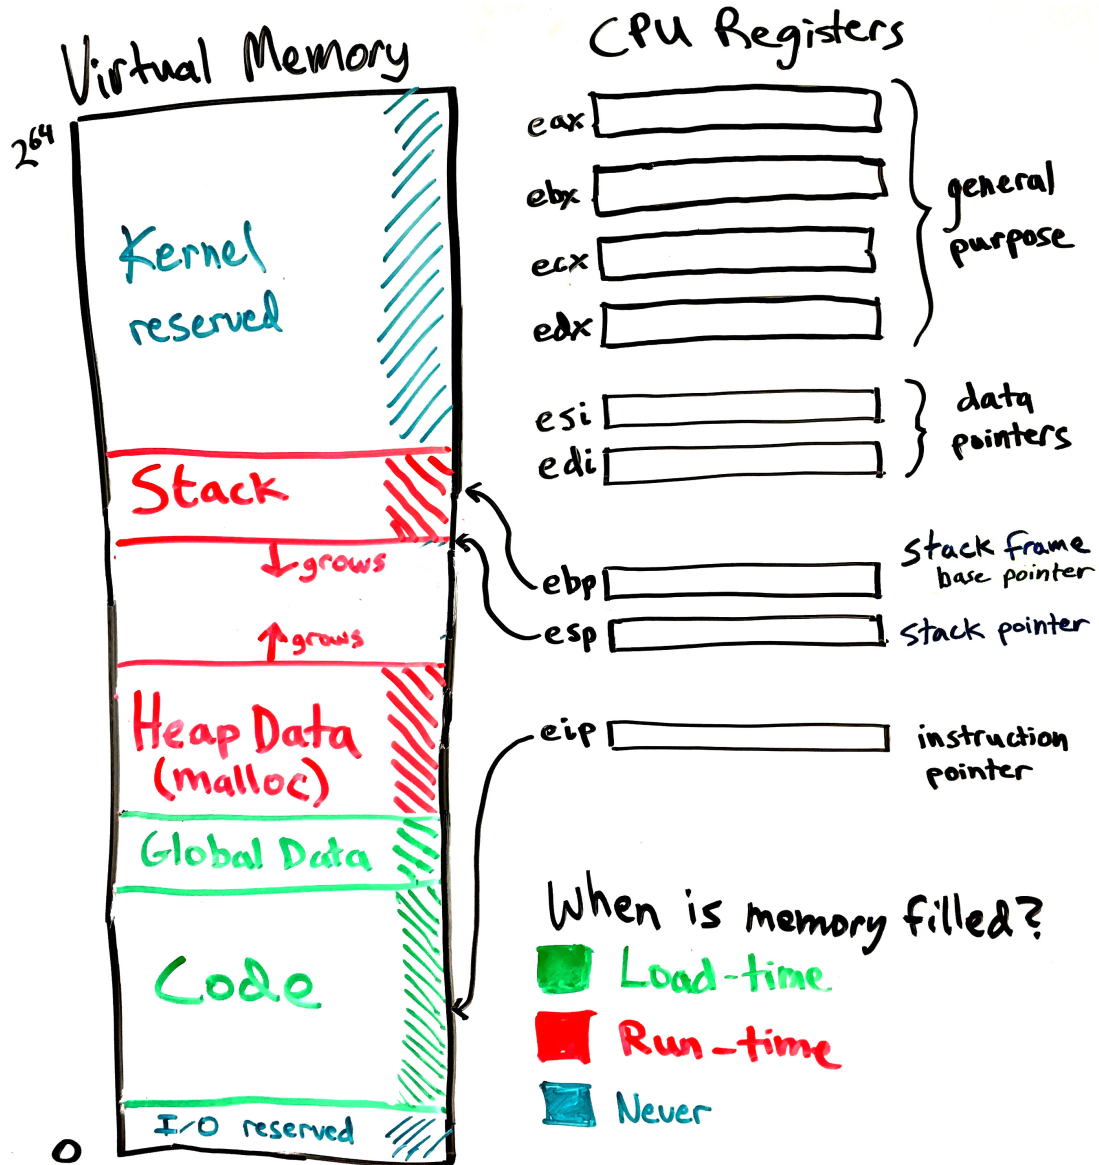 Virtual Memory
2^64
Kernel
reserved
Stack
↓grows
↑grows
Heap Data
(malloc)
Global Data
Code
I/O reserved
0
CPU Registers
eax
ebx
ecx
edx
general
purpose
esi
edi
data
pointers
ebp
stack frame
base pointer
esp
stack pointer
eip
instruction
pointer
When is memory filled?
Load-time
Run-time
Never